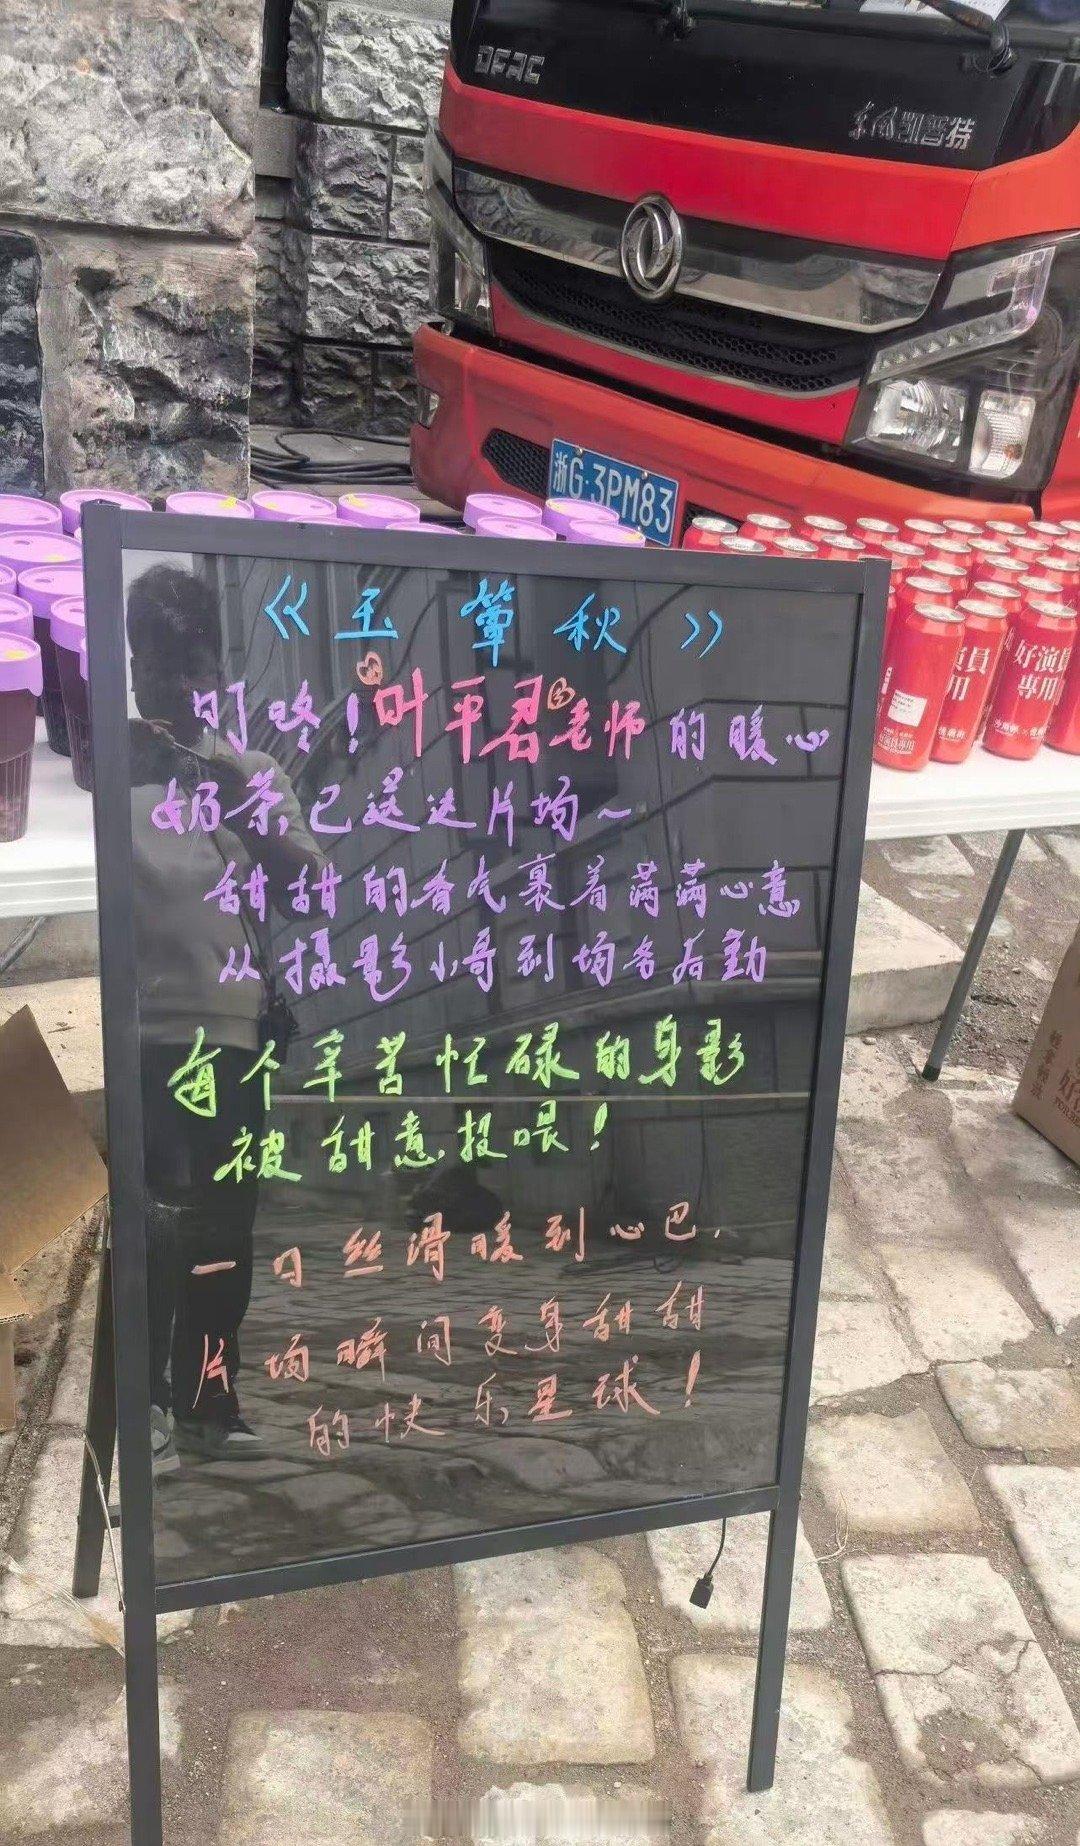 DFAC
东风凯普特
浙G·3PM83
《玉簟秋》
叮咚！叶平君老师的暖心
奶茶，已送达片场～
甜甜的香气裹着满满心意
从摄影小哥到场务后勤
每个辛苦忙碌的身影
被甜意投喂！
一口丝滑暖到心巴，
片场瞬间变身甜甜
的快乐星球！
好演員
專用
好演員專用
演員
用